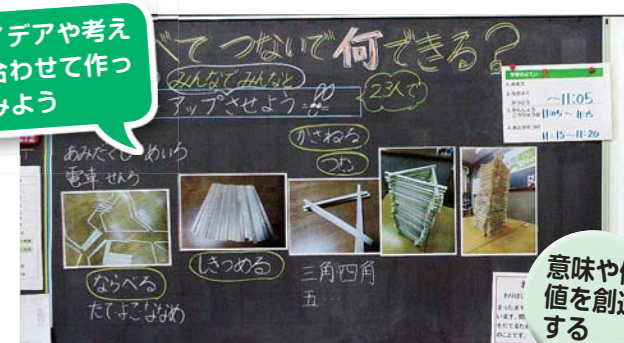 イデアや考え
合わせて作っ
みよう
べて つないで 何できる?
みんなでみんなと
アップさせよう
23人で
~11:05
11:05~11:15
11:15~11:20
あみだくじ めいろ
電車 せんろ
かさねる
つむ
ならべる
たてよこななめ
しきつめる
三角四角
五…
意味や
値を創造
する